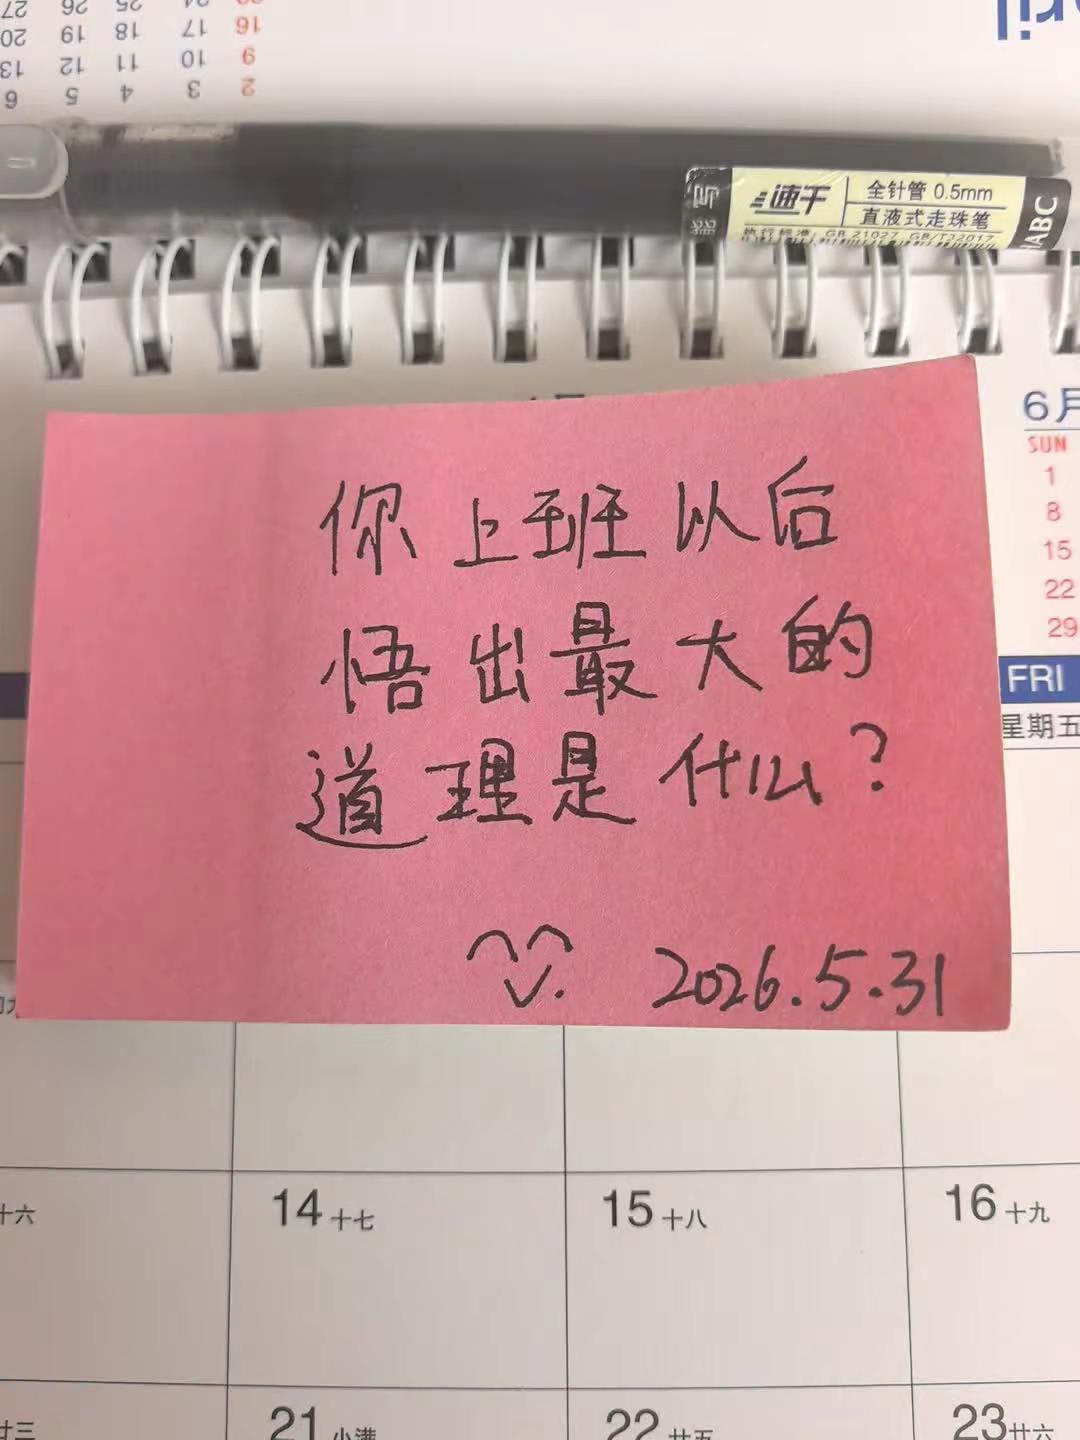 27 26 25 24 23
20 19 18 17 16
13 12 11 10 9
6 5 4 3 2
速干
全针管 0.5mm
直液式走珠笔
执行标准: GB 21027 GB/T32017
ABC
你上班以后
悟出最大的
道理是什么?
2026.5.31
6月
SUN
1
8
15
22
29
FRI
星期五
十六
14 十七
15 十八
16 十九
廿三
21 小满
22 廿五
23 廿六